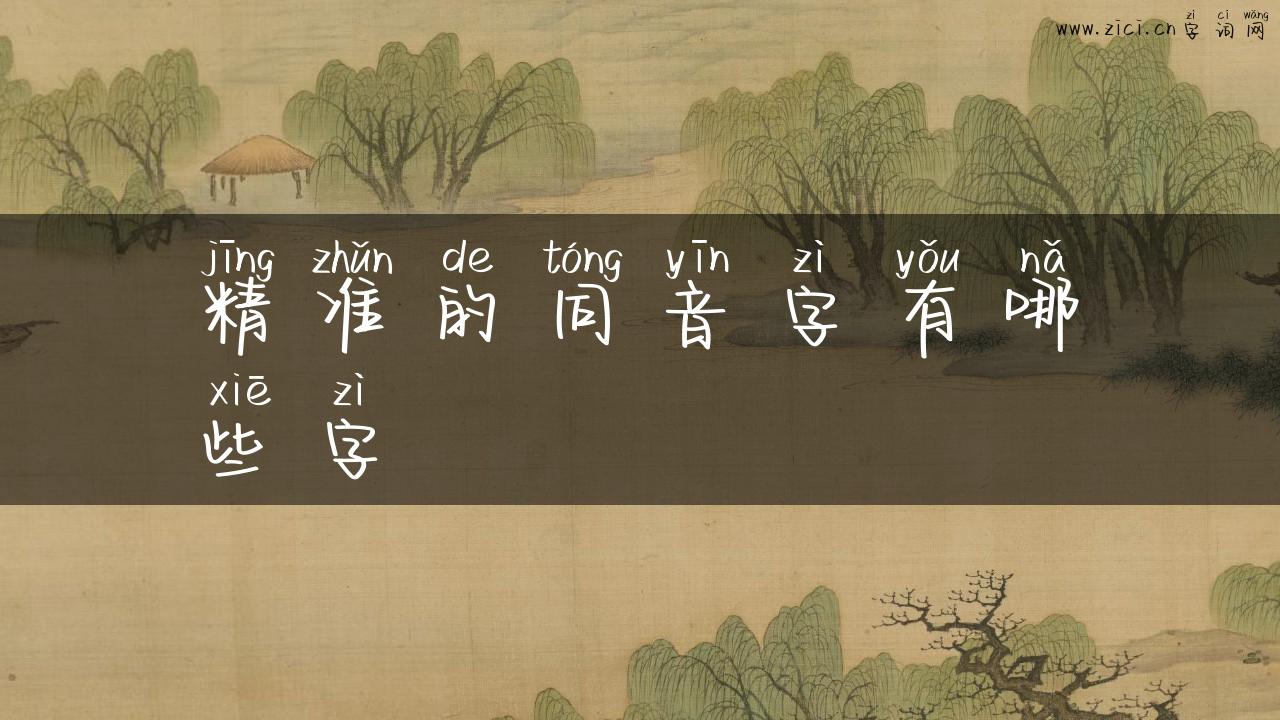 zì cí wǎng
www.zici.cn 字 词 网
jīng zhǔn de tóng yīn zì yǒu nǎ
精 准 的 同 音 字 有 哪
xiē zì
些 字